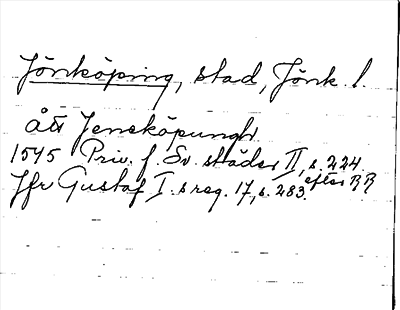 Jönköping, stad, Jönk. l.
åtr Jeneköpungh
1545 Priv. f. Sv. städer II, s. 224.
efter RR
Jfr Gustaf I:s reg. 17, s. 283.